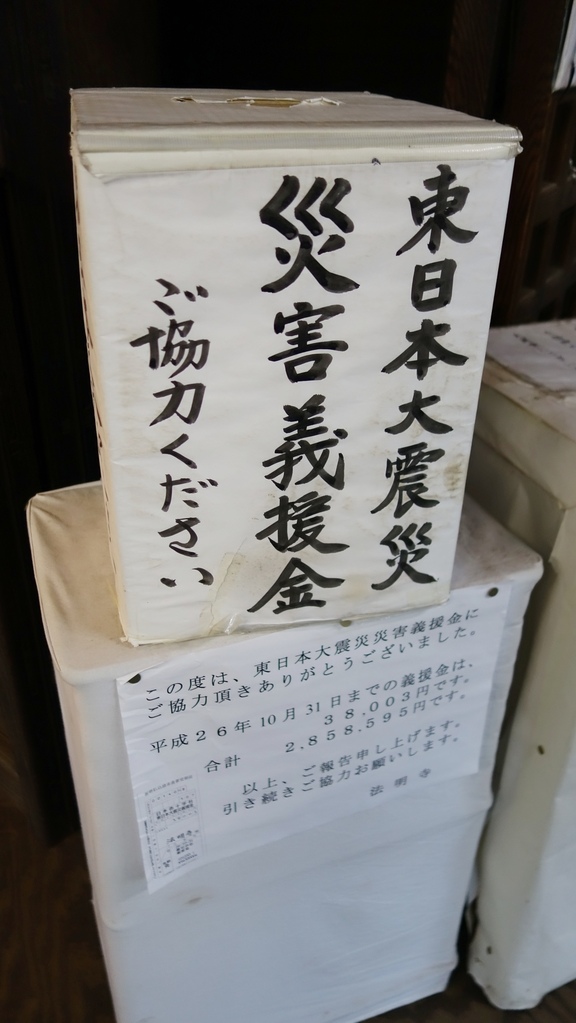 東日本大震災
災害義援金
ご協力ください
この度は、東日本大震災災害義援金に
ご協力頂きありがとうございました。
平成２６年10月31日までの義援金は、
３８,００３円です。
合計 ２,８５８,５９５円です。
以上、ご報告申し上げます。
引き続きご協力お願いします。
法明寺